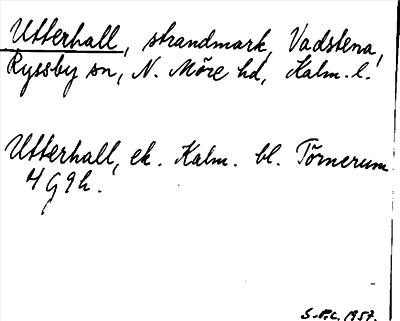 Utterhall, strandmark, Vadstena,
Ryssby sn, N. Möre hd, Kalm. l.
Utterhall, ek. Kalm. bl. Törnerum
4 G 9 h.
S.-P.C. 1957.